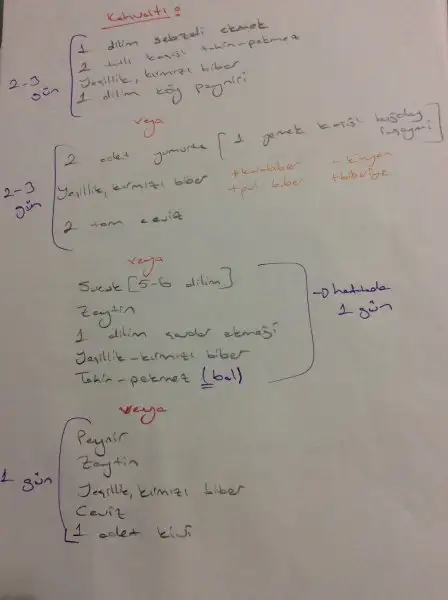 Kahvaltı:
1 dilim sebzeli ekmek
2 tatlı kaşığı tahin-pekmez
Yeşillik, kırmızı biber
1 dilim köy peyniri
2-3 gün
veya
2 adet yumurta [1 yemek kaşığı buğday ruşeymi]
Yeşillik, kırmızı biber
+karabiber - kimyon
+pul biber +biberiye
2 tam ceviz
2-3 gün
veya
Sucuk [5-6 dilim]
Zeytin
1 dilim çavdar ekmeği
Yeşillik-kırmızı biber
Tahin-pekmez (bal)
→ haftada 1 gün
veya
Peynir
Zeytin
Yeşillik, kırmızı biber
Ceviz
1 adet kivi
1 gün